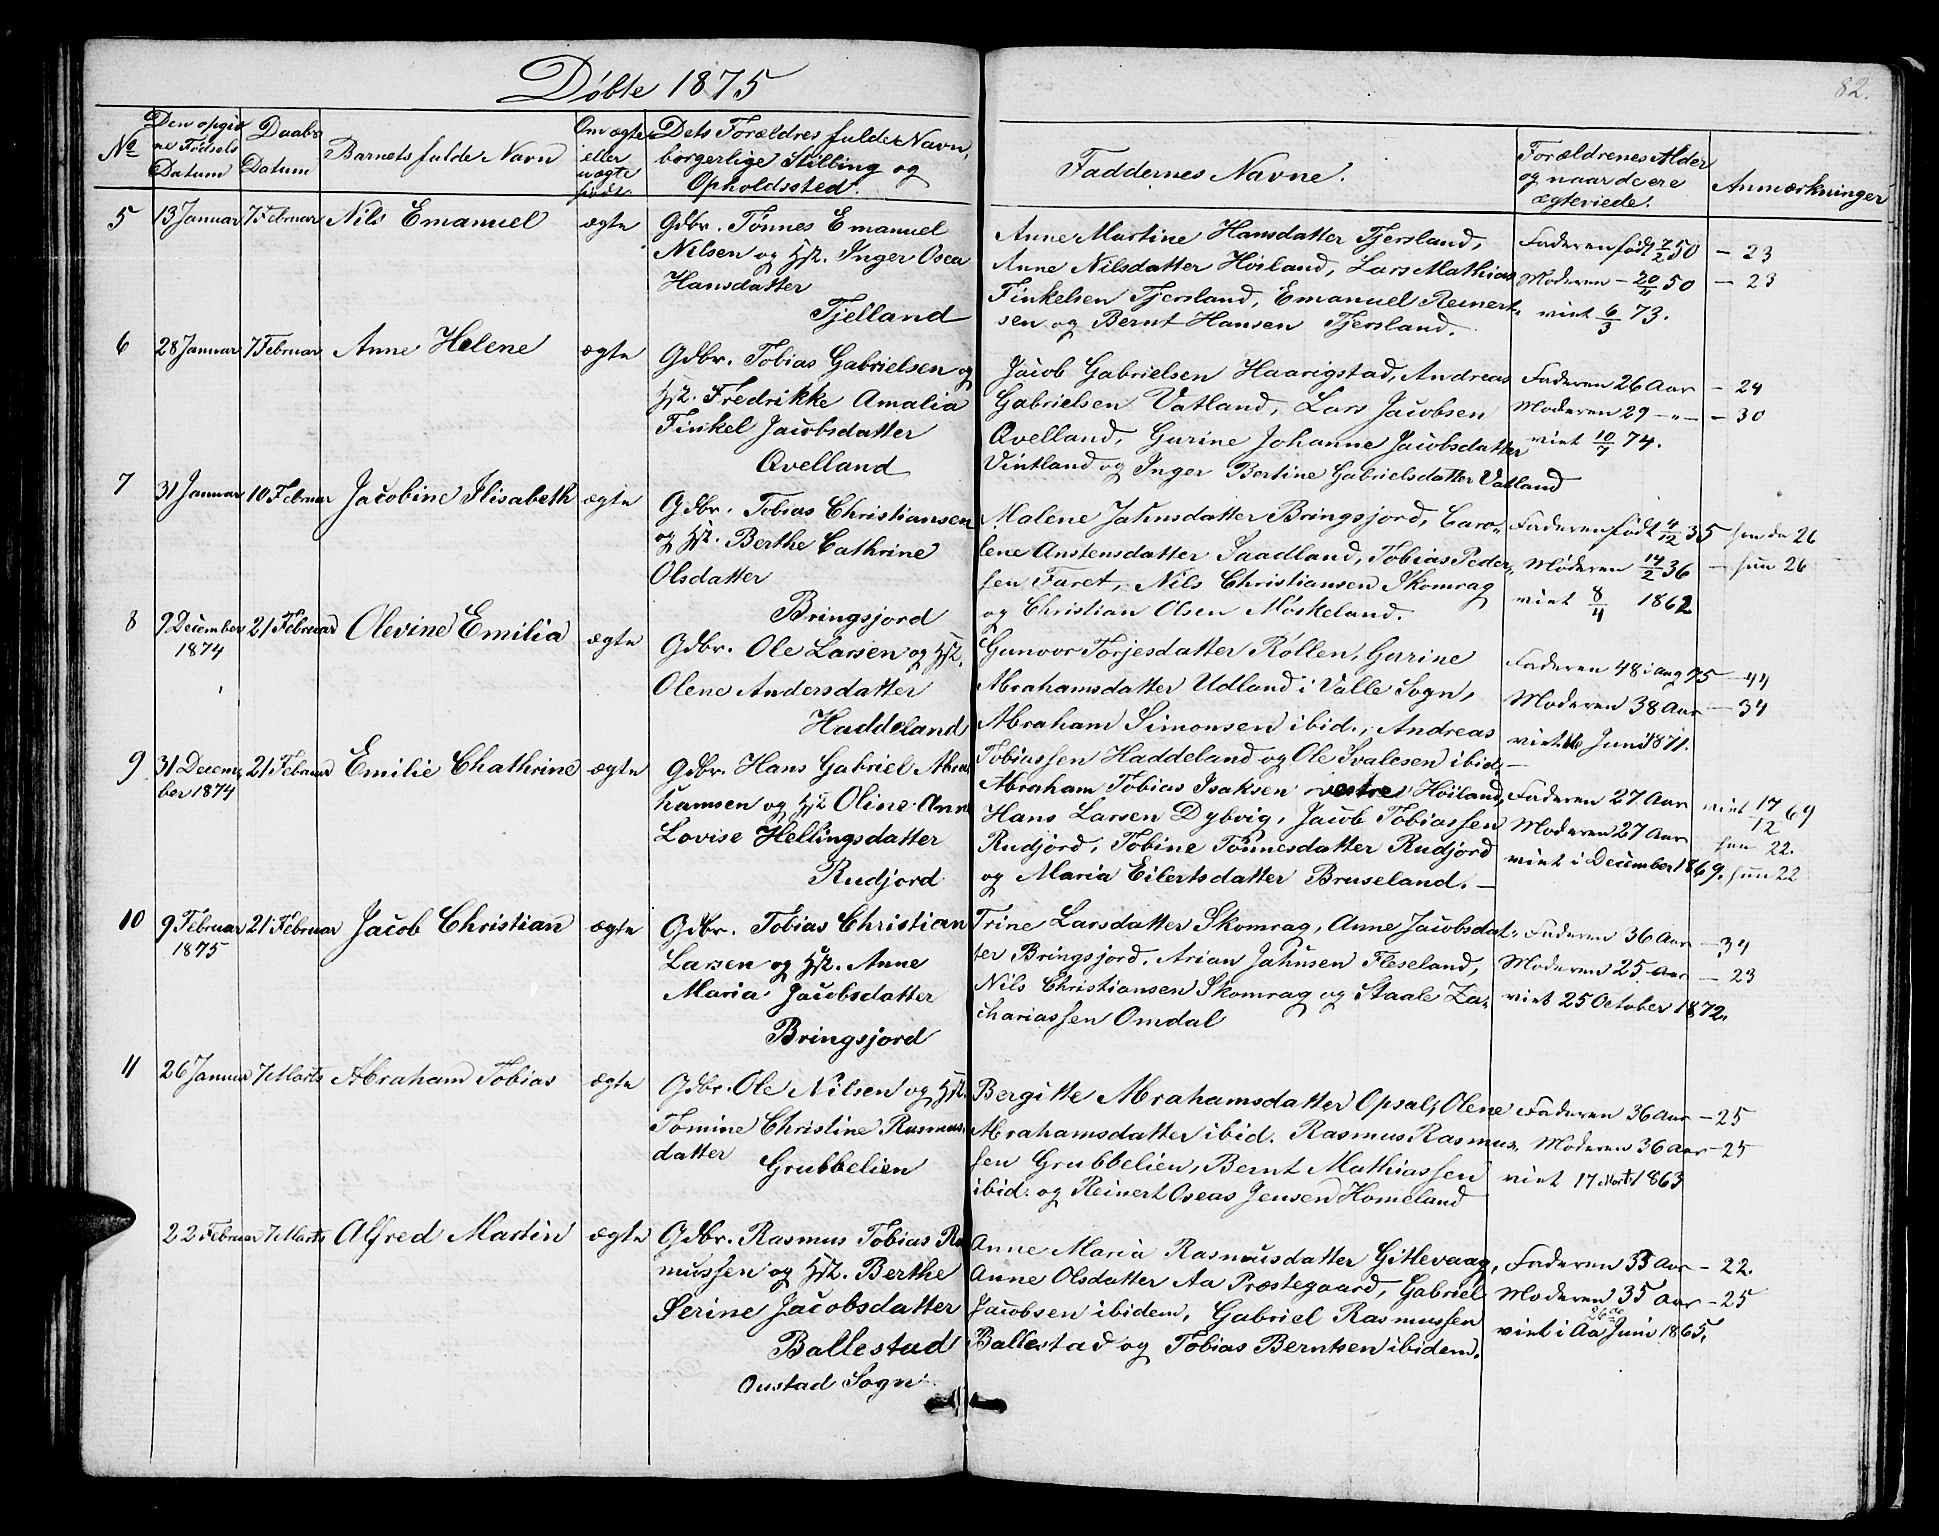 Döbte 1875
82.
No
Den opgiv
ne Fødsels
Datum
Daabs
Datum
Barnets fulde Navn
Om ægte
eller
uægte
født.
Dets Forældres fulde Navn,
borgerlige Stilling og
Opholdssted.
Faddernes Navne.
Forældrenes Alder
og naar de ere
ægteviede.
Anmærkninger
5 13 Januar 7 Februar Nils Emanuel ægte
Gdbr. Tönnes Emanuel
Nilsen og Hst. Inger Osea
Hansdatter
Tjelland
Anne Martine Hansdatter Tjersland,
Anne Nilsdatter Höiland, Lars Mathias
Finkelsen Tjersland, Emanuel Reinert-
sen og Bernt Hansen Tjersland.
Faderen født 7/2 50 - 23
Moderen - 20/11 50 - 23
viet 6/3 73.
6 28 Januar 7 Februar Anne Helene ægte
Gdbr. Tobias Gabrielsen og
Hst. Fredrikke Amalia
Finkel Jacobsdatter
Qvelland
Jacob Gabrielsen Haarigstad, Andreas
Gabrielsen Vatland, Lars Jacobsen
Qvelland, Gurine Johanne Jacobsdatter
Vintland og Inger Bertine Gabrielsdatter Vatland
Faderen 26 Aar - 24
Moderen 29 -"- - 30
viet 10/7 74.
7 31 Januar 10 Februar Jacobine Elisabeth ægte
Gdbr. Tobias Christiansen
og Hst. Berthe Cathrine
Olsdatter
Bringsjord
Malene Jahnsdatter Bringsjord, Caro-
lene Anstensdatter Saadland, Tobias Peder-
sen Faret, Nils Christiansen Skomrag
og Christian Olsen Möskeland.
Faderen født 4/12 35 - 26
Moderen 14/2 36 - hun 26
viet 8/4 1862
8 9 December 21 Februar Olevine Emilia ægte
1874
Gdbr. Ole Larsen og Hst.
Olene Andersdatter
Haddeland
Gunvor Torjesdatter Röllen, Gurine
Abrahamsdatter Udland i Valle Sogn,
Abraham Simonsen ibid., Andreas
Tobiassen Haddeland og Ole Svalesen ibid.
Faderen 48 i aug 75 - 44
Moderen 38 Aar - 34
viet 16 Juni 1871.
9 31 Decem- 21 Februar Emilie Chathrine ægte
ber 1874
Gdbr. Hans Gabriel Abra
hamsen og Hst Oline Ann
Lovise Hellingsdatter
Rudjord
Abraham Tobias Isaksen vestre Höiland,
Hans Larsen Dybvig, Jacob Tobiassen
Rudjord, Tobine Tönnesdatter Rudjord
og Maria Eilertsdatter Bruseland. -
Faderen 27 Aar viet 17/12 69
Moderen 27 Aar han 22.
viet i December 1869. hun 22
10 9 Februar 21 Februar Jacob Christian ægte
1875
Gdbr. Tobias Christian
Larsen og Hst. Anne
Maria Jacobsdatter
Bringsjord
Trine Larsdatter Skomrag, Anne Jacobsdat-
ter Bringsjord, Arian Jahnsen Fleseland,
Nils Christiansen Skomrag og Staale Za-
chariassen Omdal
Faderen 36 Aar - 34
Moderen 25 Aar - 23
viet 25 October 1872.
11 26 Januar 7 Marts Abraham Tobias ægte
Gdbr. Ole Nilsen og Hst.
Tomine Christine Rasmus-
datter
Grubbelien
Bergitte Abrahamsdatter Opsal, Olene
Abrahamsdatter ibid. Rasmus Rasmus-
sen Grubbelien, Bernt Mathiassen
ibid. og Reinert Oseas Jensen Homeland
Faderen 36 Aar - 25
Moderen 36 Aar - 25
viet 17 Marts 1863
22 Februar 7 Marts Alfred Martin ægte
Gdbr. Rasmus Tobias Ra
mussen og Hst. Berthe
Serine Jacobsdatter
Ballestad
Oustad Sogn.
Anne Maria Rasmusdatter Gitlevaag,
Anne Olsdatter Aa Præstegaard, Gabriel
Jacobsen ibidem, Gabriel Rasmussen
Ballestad og Tobias Berntsen ibidem.
Faderen 33 Aar - 22.
Moderen 35 Aar - 25
viet i Aa 26de Juni 1865.